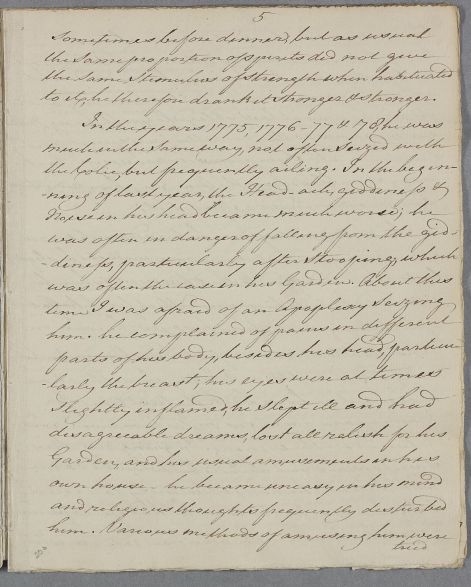 5
Sometimes before dinner, but as usual
the same proportion of spirits did not give
the same Stimulus of strength when habituated
to it, he therefore drank it stronger & stronger.
In the years 1775, 1776 - 77 & 78, he was
much in the same way, not often seized with
the Colic, but frequently ailing. In the begin-
-ning of last year, the Head-ach, giddiness &
Noise in his head became much worse; he
was often in danger of falling from the gid-
-diness, particularly after Stooping, which
was often the case in his Garden. About this
time I was afraid of an Apoplexy Seizing
him. he complained of pains in different
parts of his body, besides his head, particu-
-larly the breast; his eyes were at times
Slightly inflamed, he slept ill and had
disagreeable dreams, lost all relish for his
Garden, and his usual amusements in his
own house - he became uneasy in his mind
and religious thoughts frequently disturbed
him. Various methods of amusing him were
tried